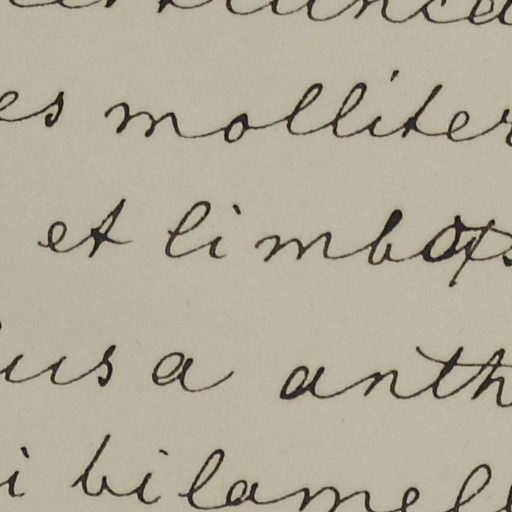 es molliter
et limbo
usa anth
i bilamell